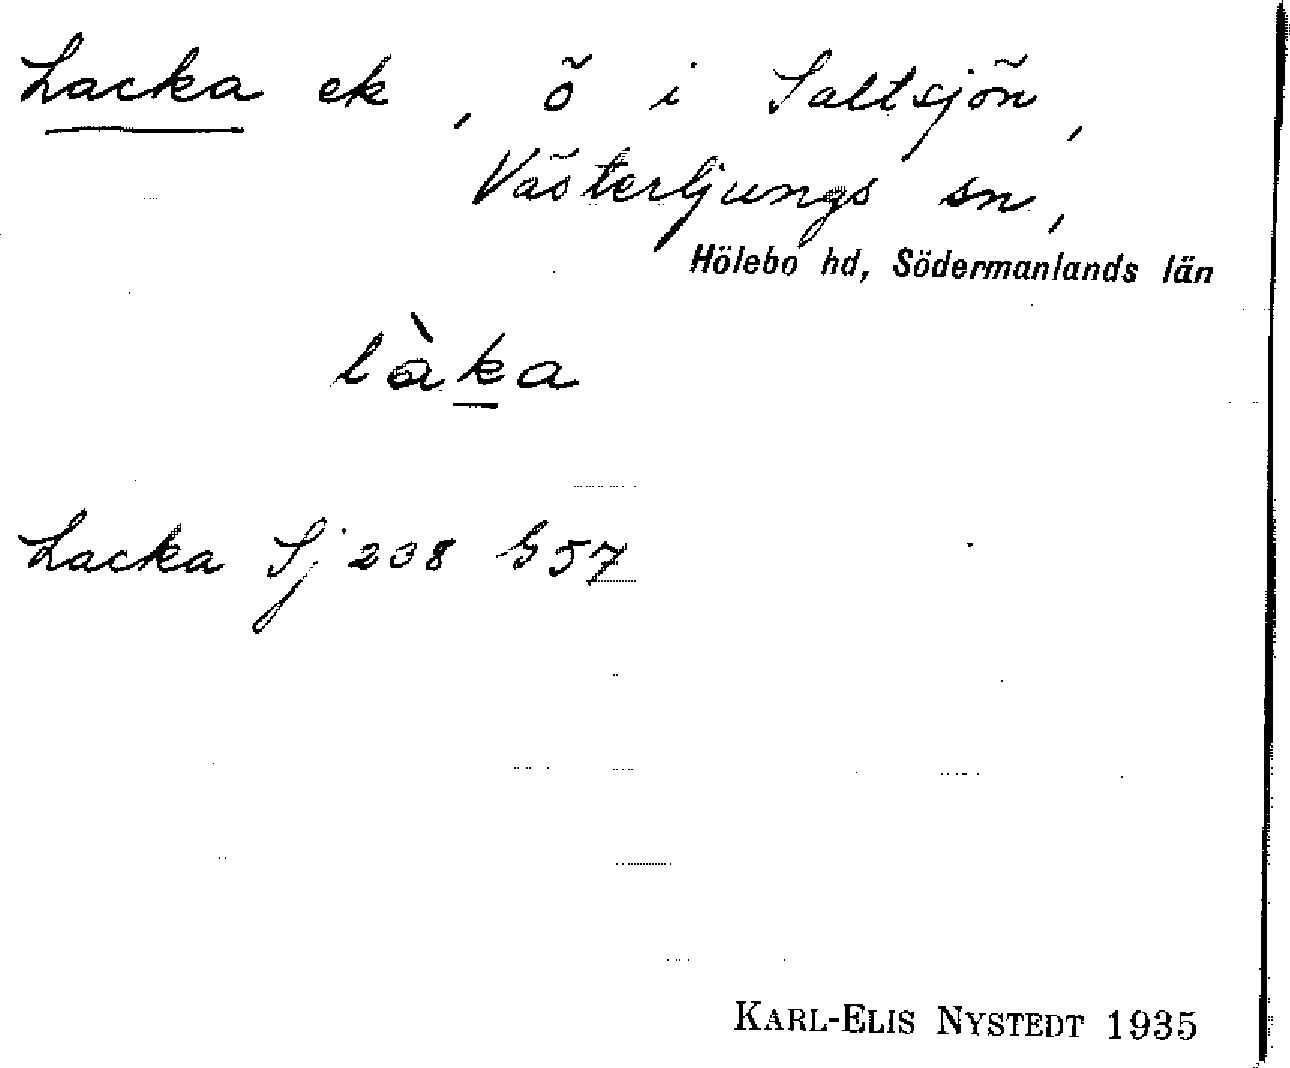 Lacka ek, ö i Saltsjön,
Västerljungs sn,
Hölebo hd, Södermanlands län
làka
Lacka Sj 238 G 57
KARL-ELIS NYSTEDT 1935